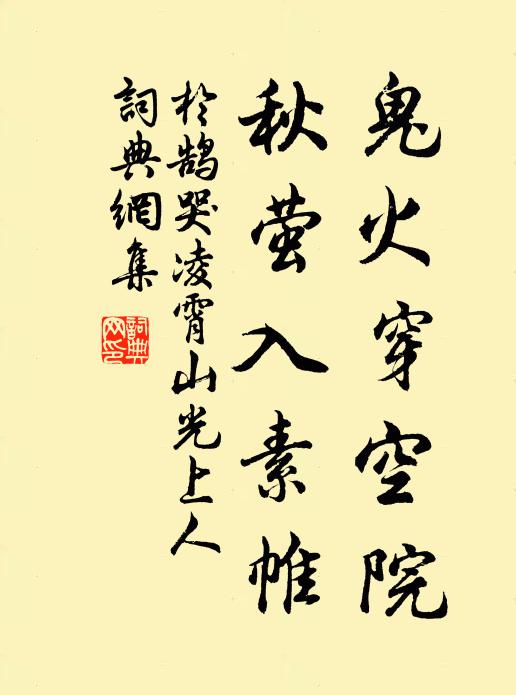 鬼火穿空院
秋萤入素帷
於鹄哭凌霄山光上人
詞典網集
詞典網印